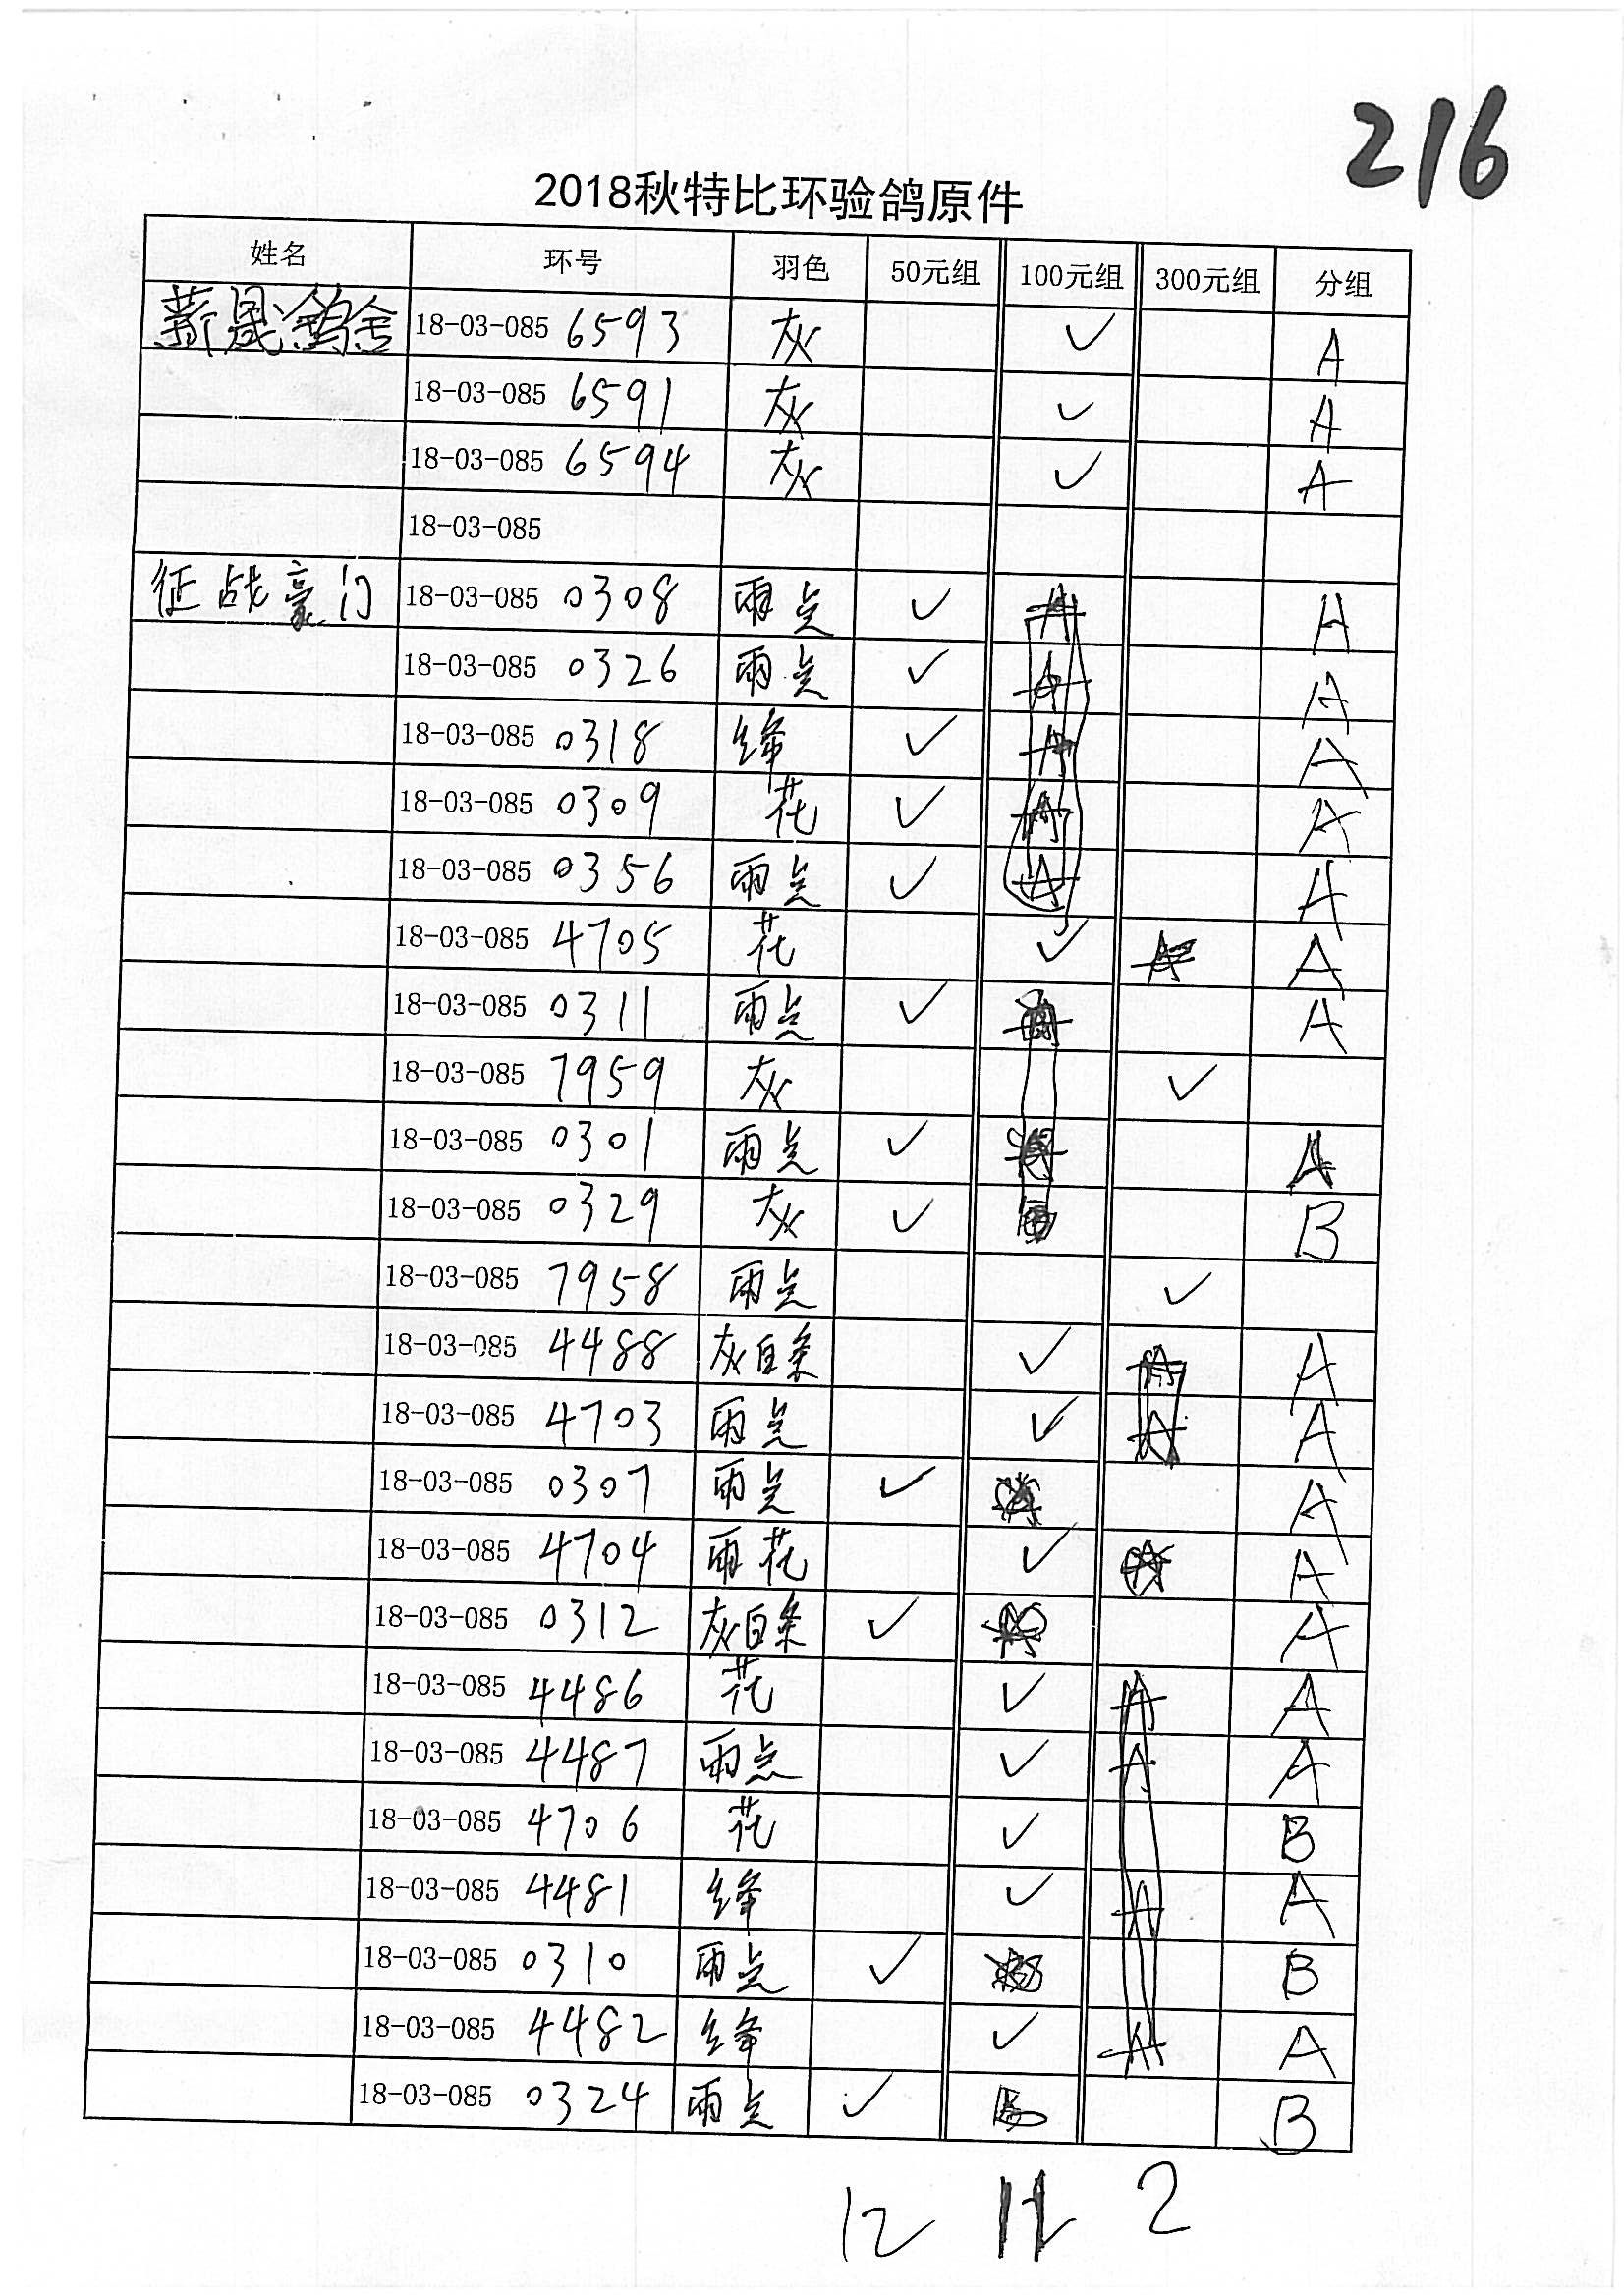 216
2018秋特比环验鸽原件
姓名 环号 羽色 50元组 100元组 300元组 分组
薪晟鸽舍 18-03-085 6593 灰 ✓ A
18-03-085 6591 灰 ✓ A
18-03-085 6594 灰 ✓ A
18-03-085
征战豪门 18-03-085 0308 雨点 ✓ A A
18-03-085 0326 雨点 ✓ A A
18-03-085 0318 绛 ✓ A A
18-03-085 0309 花 ✓ A A
18-03-085 0356 雨点 ✓ A A
18-03-085 4705 花 ✓ A A
18-03-085 0311 雨点 ✓ A
18-03-085 7959 灰 ✓
18-03-085 0301 雨点 ✓ A
18-03-085 0329 灰 ✓ B
18-03-085 7958 雨点 ✓
18-03-085 4488 灰白条 ✓ A A
18-03-085 4703 雨点 ✓ A A
18-03-085 0307 雨点 ✓ A
18-03-085 4704 雨花 ✓ A A
18-03-085 0312 灰白条 ✓ A
18-03-085 4486 花 ✓ A A
18-03-085 4487 雨点 ✓ A A
18-03-085 4706 花 ✓ B
18-03-085 4481 绛 ✓ A A
18-03-085 0310 雨点 ✓ B
18-03-085 4482 绛 ✓ A A
18-03-085 0324 雨点 ✓ B
12 11 2